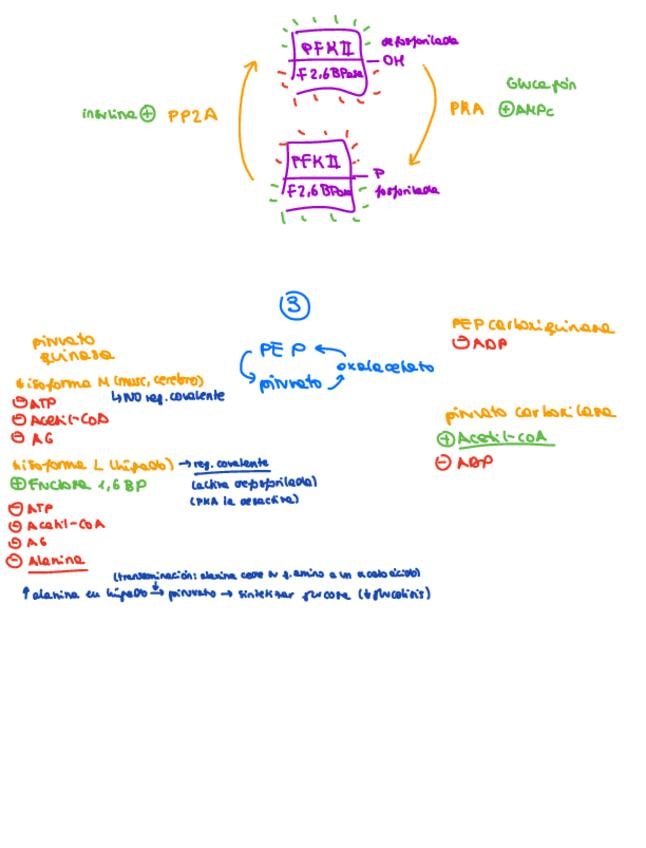 PFK II
F 2,6 BPasa
defosforilada
OH
insulina ⊕ PP2A
PKA
Glucagón
⊕ AMPc
PFK II
F 2,6 BPasa
P
fosforilada
③
PEP
piruvato
oxalacetato
piruvato
quinasa
↳ isoforma M (musc, cerebro)
↳ NO reg. covalente
⊖ ATP
⊖ Acetil-CoA
⊖ AG
↳ isoforma L (hígado) → reg. covalente
(activa defosforilada)
(PKA la desactiva)
⊕ Fructosa 1,6 BP
⊖ ATP
⊖ Acetil-CoA
⊖ AG
⊖ Alanina
PEP carboxiquinasa
⊖ ADP
piruvato carboxilasa
⊕ Acetil-CoA
⊖ ADP
(transaminación: alanina cede su g. amino a un α cetoácido)
↑ alanina en hígado → piruvato → sintetizar glucosa (↓ glucolisis)